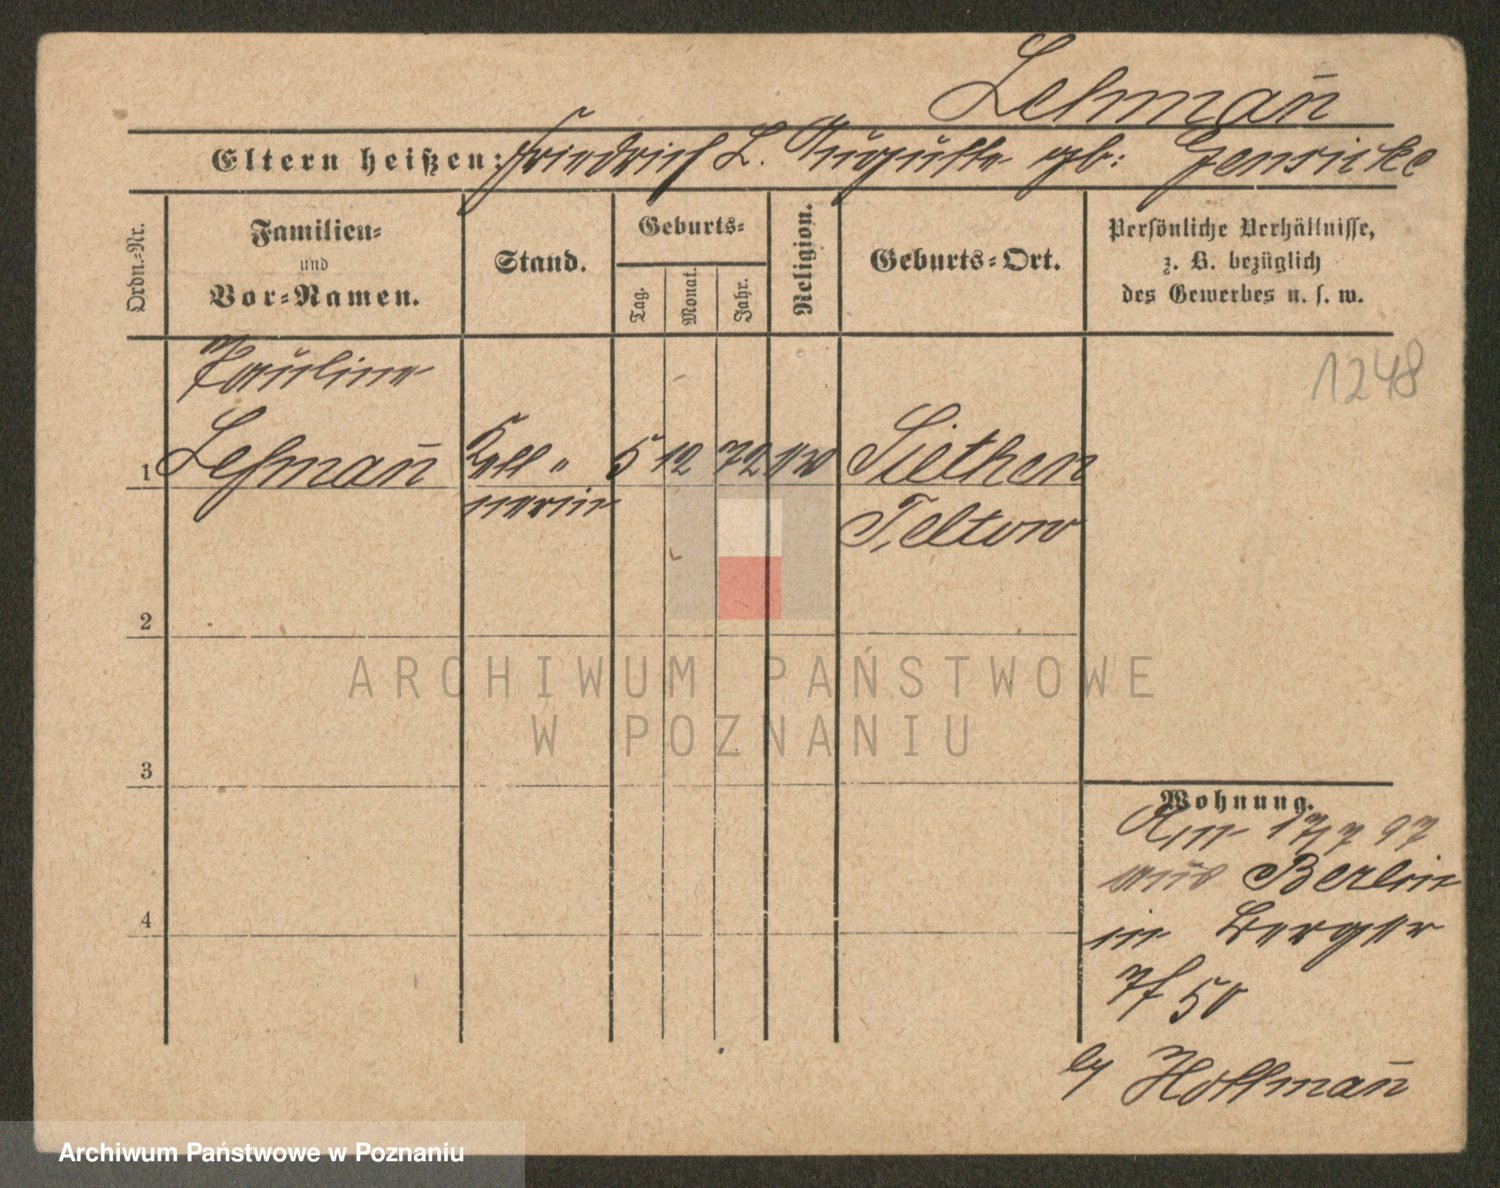 Lehmann̄
Eltern heißen: Friedrich L. Auguste gb: Gensicke
Ordn.-Nr.
Familien-
und
Vor-Namen.
Stand.
Geburts-
Tag.
Monat.
Jahr.
Religion.
Geburts-Ort.
Persönliche Verhältnisse,
z. B. bezüglich
des Gewerbes u. s. w.
1248
Pauline
1 Lehman̄ Kell" 5 12 72 Siethen
nerin Teltow
2
3
4
Wohnung.
17/7 97
aus Berlin
in Berger
50
by Hoffman̄
ARCHIWUM PAŃSTWOWE
W POZNANIU
Archiwum Państwowe w Poznaniu